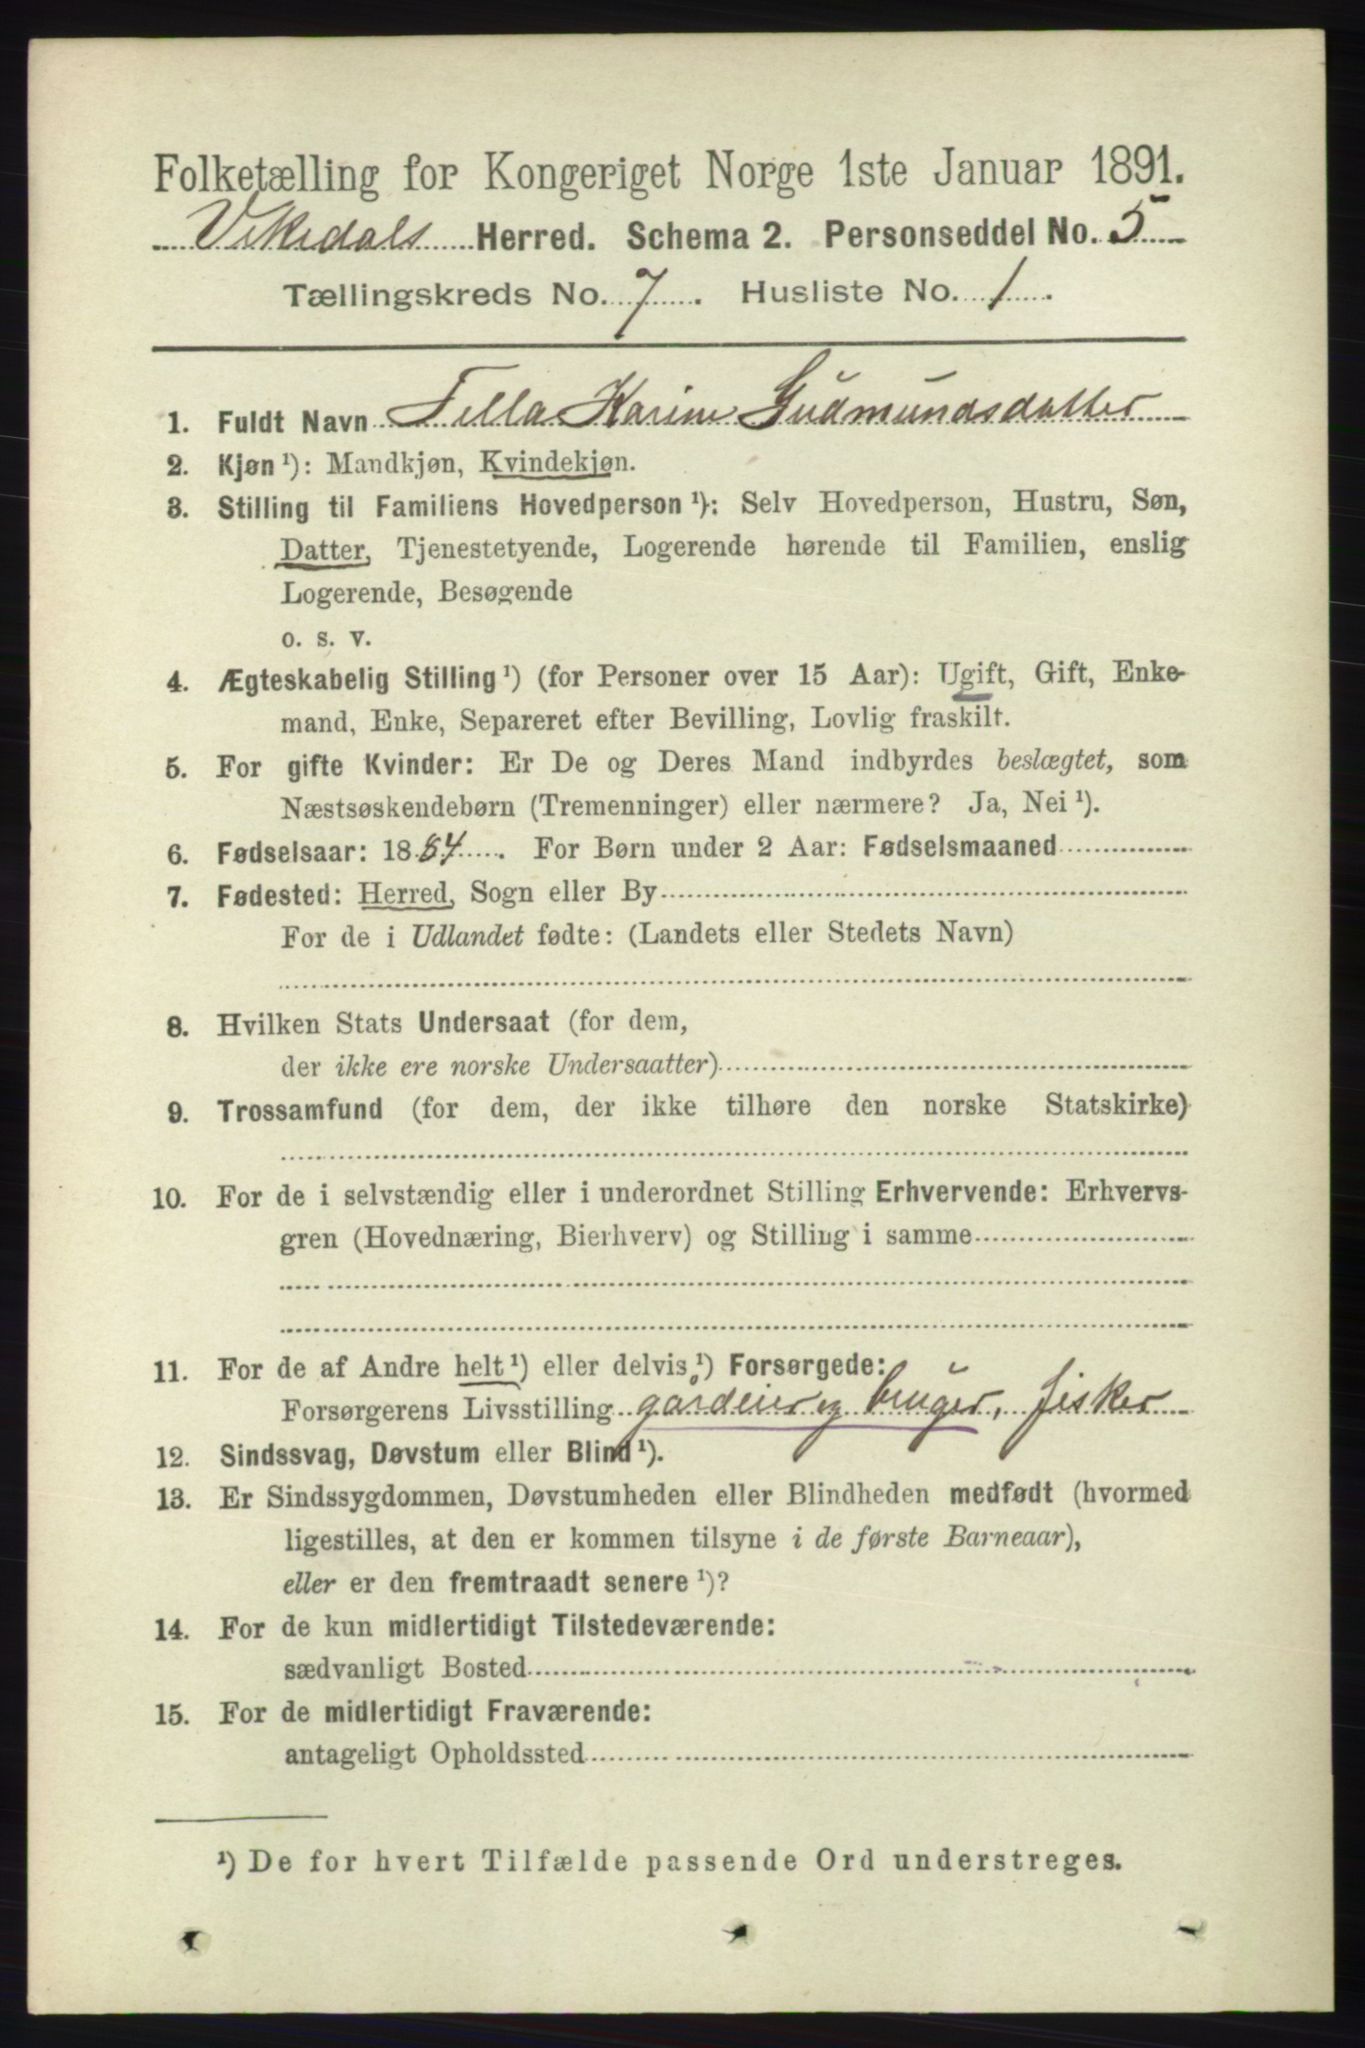 Folketælling for Kongeriget Norge 1ste Januar 1891.
Vikedals Herred. Schema 2. Personseddel No. 5
Tællingskreds No. 7. Husliste No. 1.
1. Fuldt Navn Tella Karine Gudmundsdatter
2. Kjøn¹): Mandkjøn, Kvindekjøn.
3. Stilling til Familiens Hovedperson¹): Selv Hovedperson, Hustru, Søn,
Datter, Tjenestetyende, Logerende hørende til Familien, enslig
Logerende, Besøgende
o. s. v.
4. Ægteskabelig Stilling¹) (for Personer over 15 Aar): Ugift, Gift, Enke-
mand, Enke, Separeret efter Bevilling, Lovlig fraskilt.
5. For gifte Kvinder: Er De og Deres Mand indbyrdes beslægtet, som
Næstsøskendebørn (Tremenninger) eller nærmere? Ja, Nei¹).
6. Fødselsaar: 1884. For Børn under 2 Aar: Fødselsmaaned
7. Fødested: Herred, Sogn eller By
For de i Udlandet fødte: (Landets eller Stedets Navn)
8. Hvilken Stats Undersaat (for dem,
der ikke ere norske Undersaatter)
9. Trossamfund (for dem, der ikke tilhøre den norske Statskirke)
10. For de i selvstændig eller i underordnet Stilling Erhvervende: Erhvervs-
gren (Hovednæring, Bierhverv) og Stilling i samme
11. For de af Andre helt¹) eller delvis¹) Forsørgede:
Forsørgerens Livsstilling gardeier og bruger, fisker
12. Sindssvag, Døvstum eller Blind¹).
13. Er Sindssygdommen, Døvstumheden eller Blindheden medfødt (hvormed
ligestilles, at den er kommen tilsyne i de første Barneaar),
eller er den fremtraadt senere¹)?
14. For de kun midlertidigt Tilstedeværende:
sædvanligt Bosted
15. For de midlertidigt Fraværende:
antageligt Opholdssted
¹) De for hvert Tilfælde passende Ord understreges.